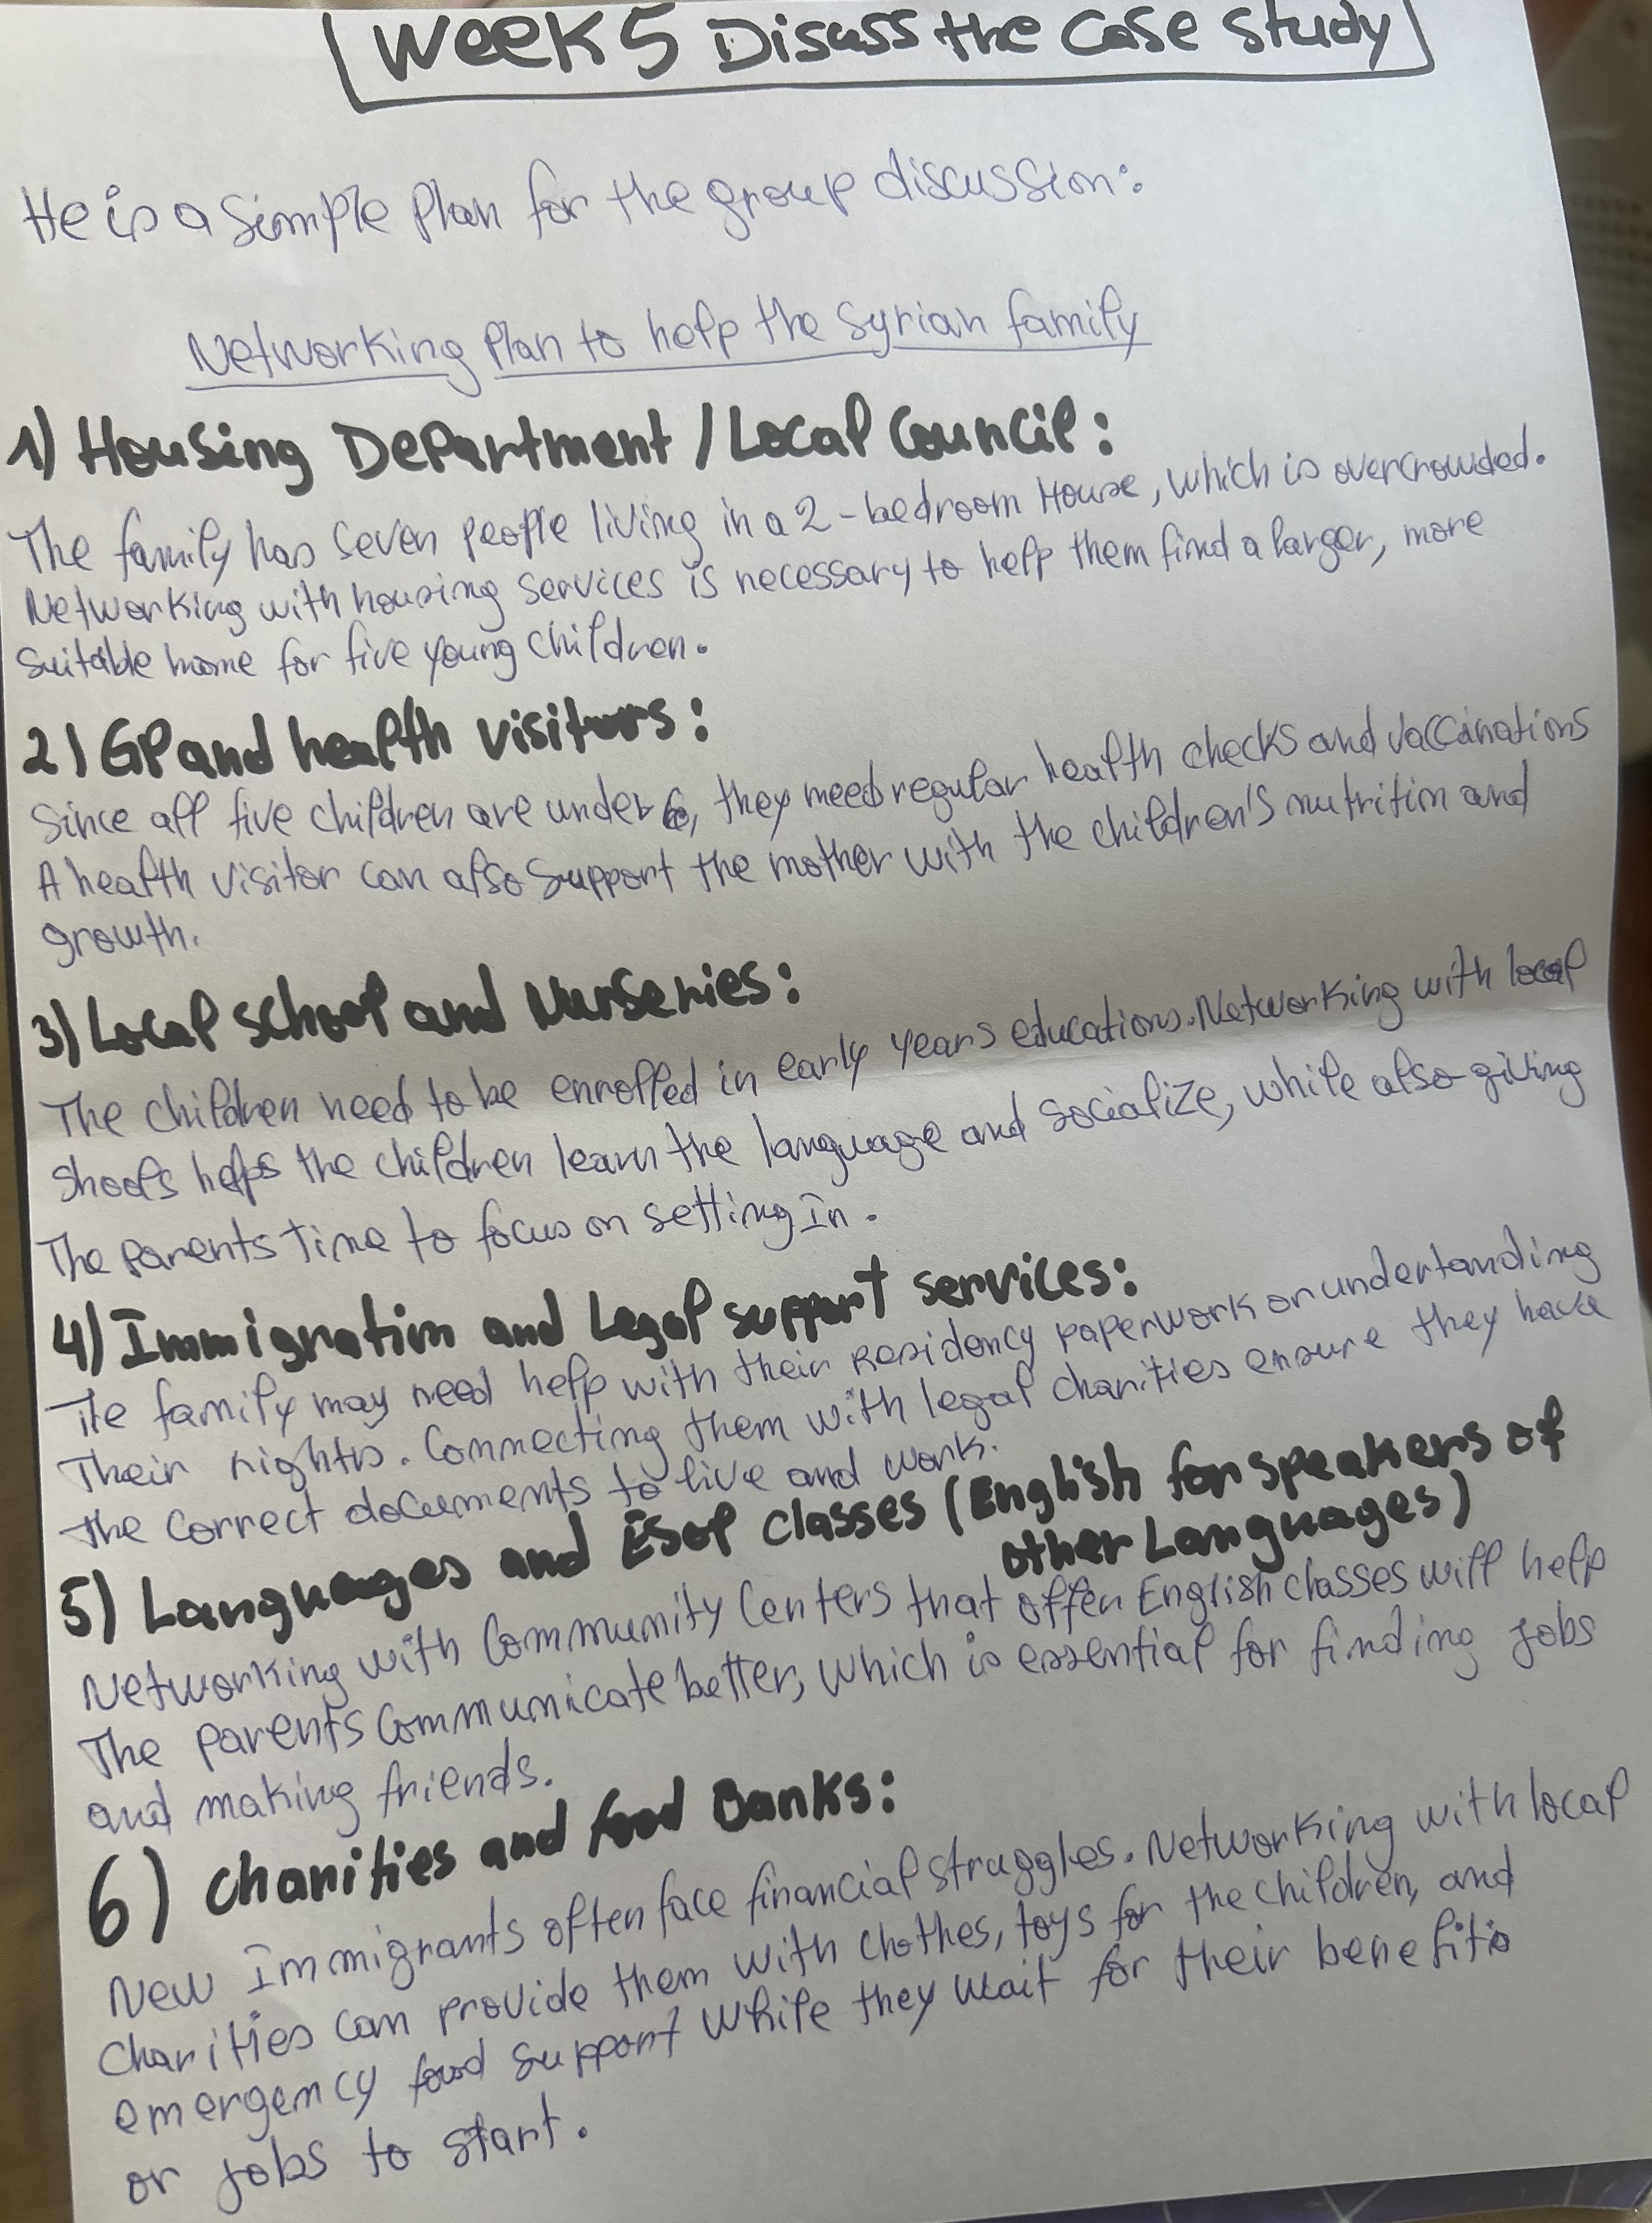 Week 5 Discuss the Case Study
He is a Simple Plan for the group discussion:
Networking Plan to help the Syrian family
1) Housing Department / Local Council:
The family has seven people living in a 2-bedroom House, which is overcrowded.
Networking with housing services is necessary to help them find a larger, more
suitable home for five young children.
2) GP and health visitors:
Since all five children are under 6, they need regular health checks and vaccinations
A health visitor can also support the mother with the children's nutrition and
growth.
3) Local school and Nurseries:
The children need to be enrolled in early years educations. Networking with local
shools helps the children learn the language and socialize, while also giving
The parents time to focus on setting In.
4) Immigration and Legal support services:
The family may need help with their Residency paperwork or undertanding
Their rights. Connecting them with legal charities ensure they have
the correct documents to live and work.
5) Languages and Esol classes (English for speakers of
other Languages)
Networking with Community Centers that offer English classes will help
The parents Communicate better, which is essential for finding jobs
and making friends.
6) Charities and food Banks:
New Immigrants often face financial struggles. Networking with local
Charities can provide them with clothes, toys for the children, and
emergency food support while they wait for their benefits
or jobs to start.